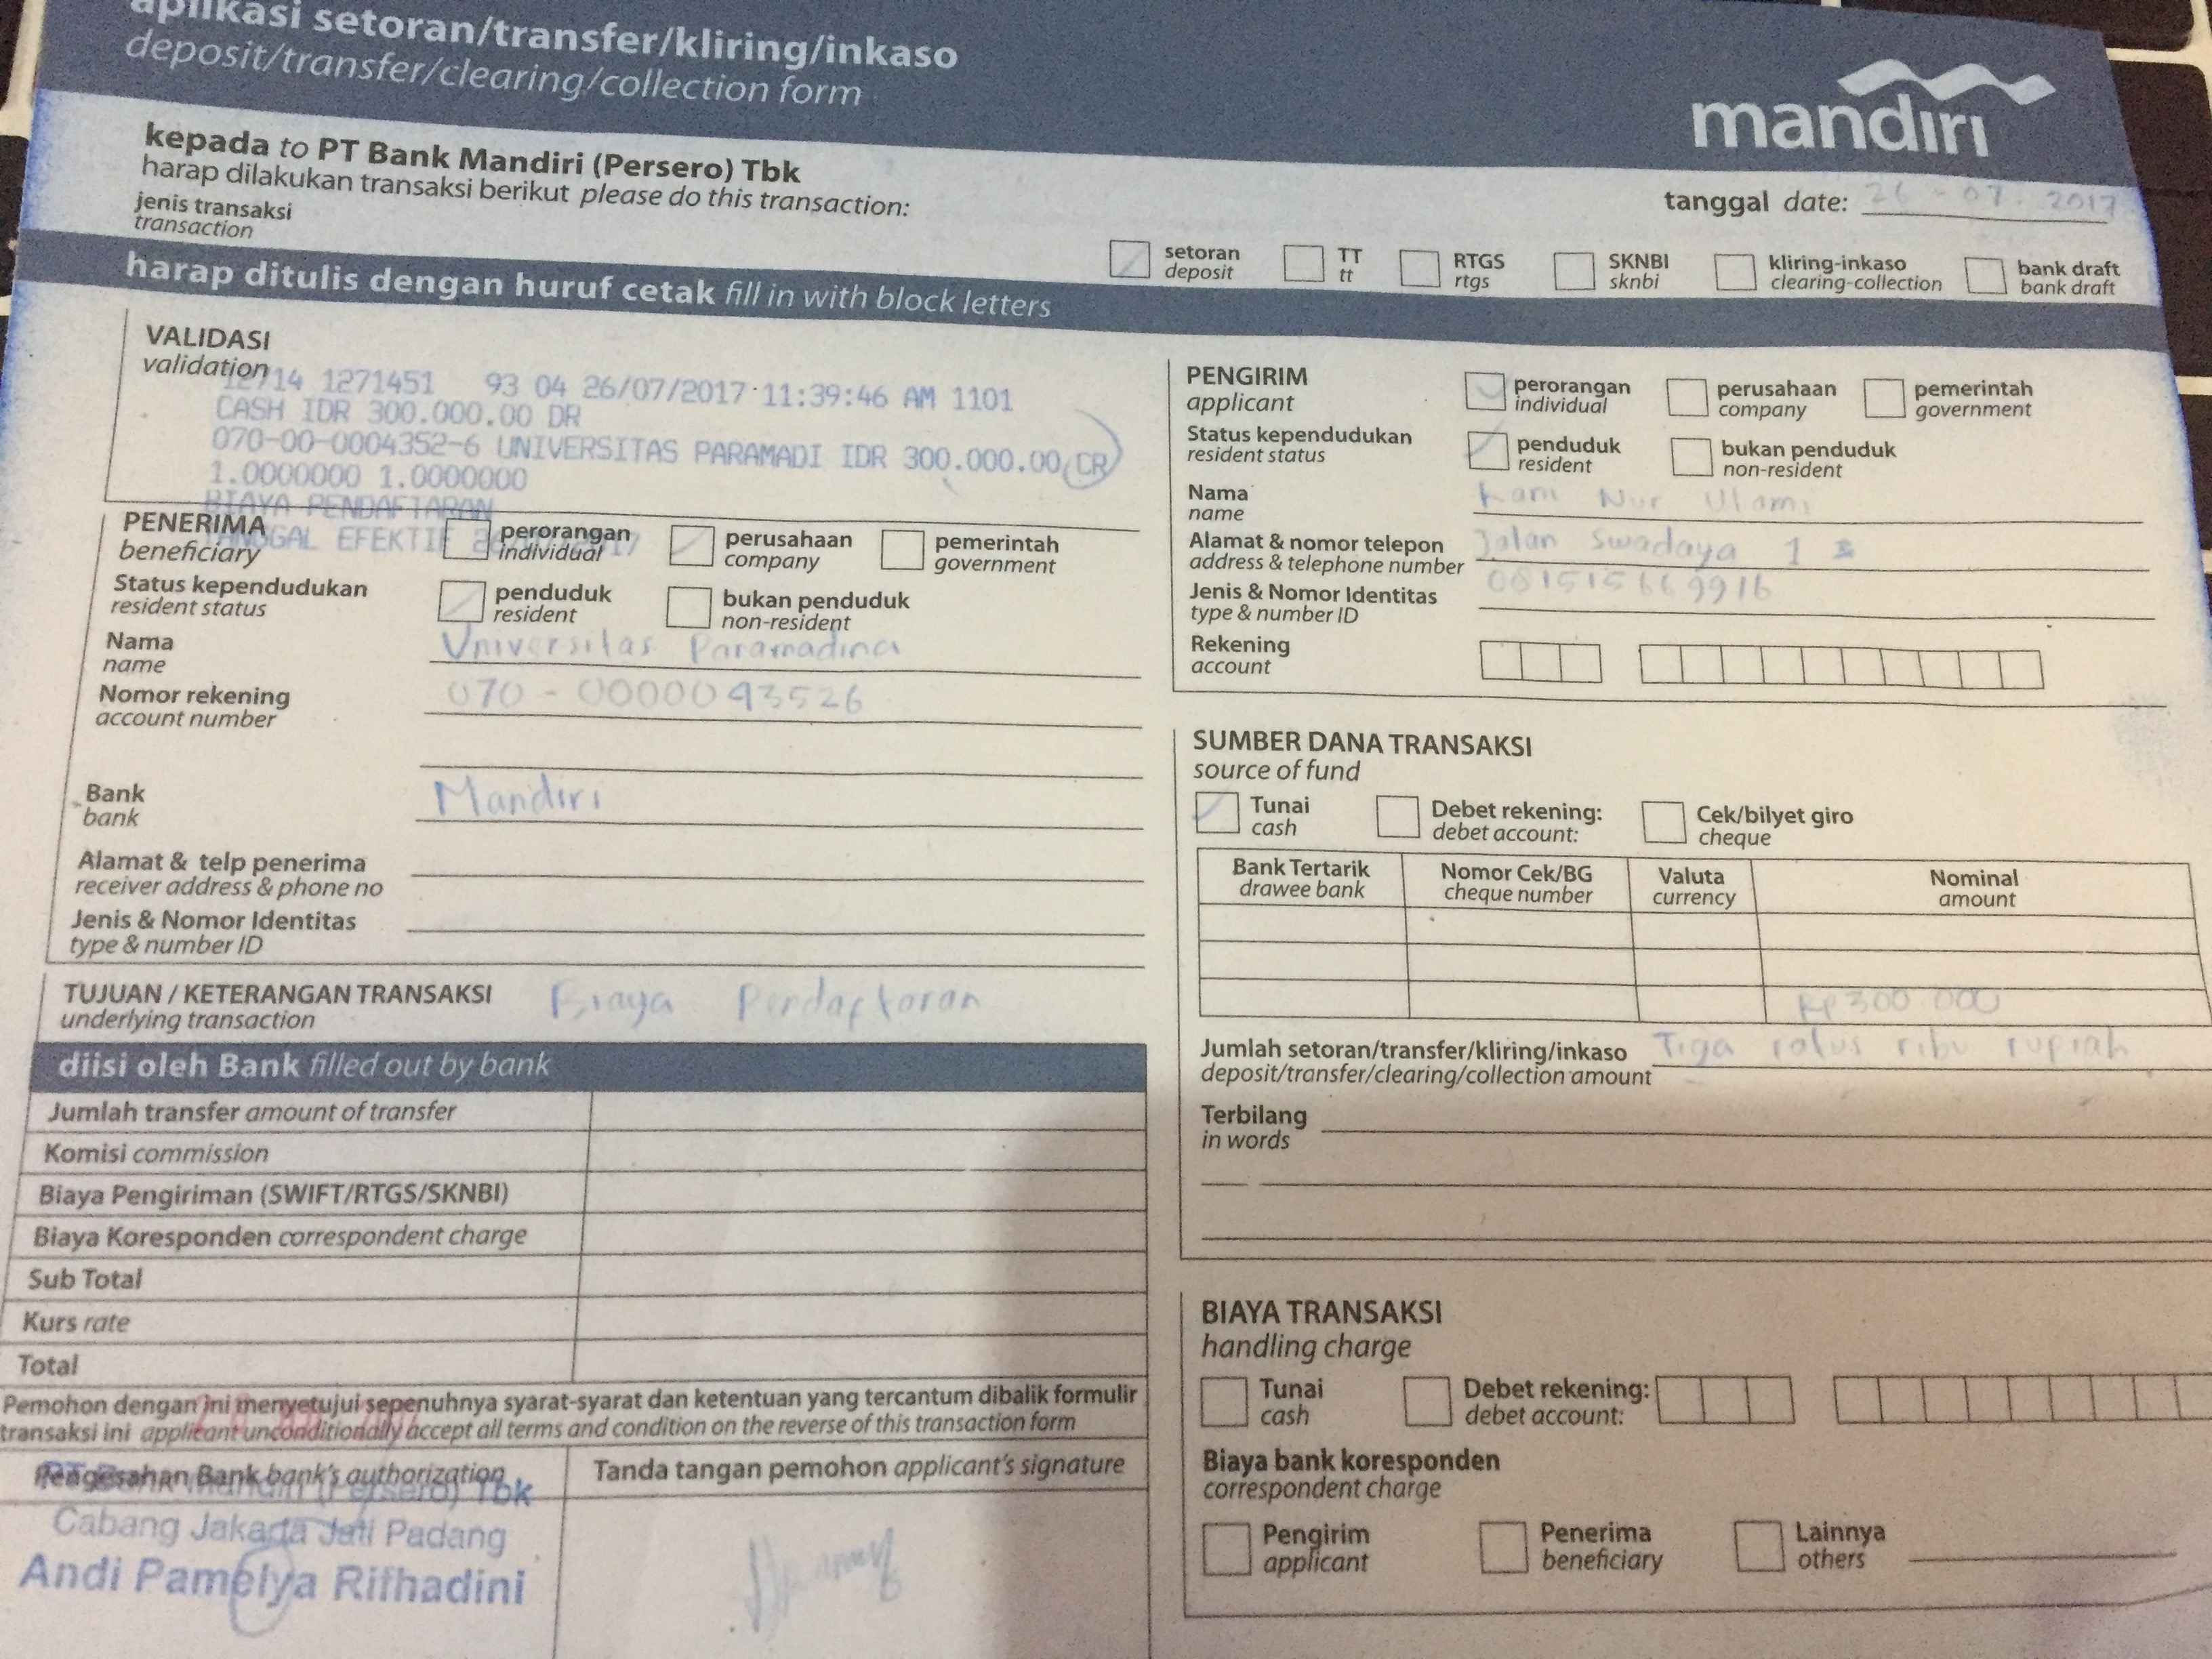 aplikasi setoran/transfer/kliring/inkaso
deposit/transfer/clearing/collection form
mandırı
kepada to PT Bank Mandiri (Persero) Tbk
harap dilakukan transaksi berikut please do this transaction:
tanggal date: 26 - 07 - 2017
jenis transaksi
transaction
setoran
deposit
TT
tt
RTGS
rtgs
SKNBI
sknbi
kliring-inkaso
clearing-collection
bank draft
bank draft
harap ditulis dengan huruf cetak fill in with block letters
VALIDASI
validation
12714 1271451 93 04 26/07/2017 11:39:46 AM 1101
CASH IDR 300.000.00 DR
070-00-0004352-6 UNIVERSITAS PARAMADI IDR 300.000.00 CR
1.0000000 1.0000000
BIAYA PENDAFTARAN
PENERIMA
beneficiary
perorangan
individual
perusahaan
company
pemerintah
government
Status kependudukan
resident status
penduduk
resident
bukan penduduk
non-resident
Nama
name
Universitas Paramadina
Nomor rekening
account number
070 - 0000043526
Bank
bank
Mandiri
Alamat & telp penerima
receiver address & phone no
Jenis & Nomor Identitas
type & number ID
TUJUAN / KETERANGAN TRANSAKSI
underlying transaction
Biaya Pendaftaran
diisi oleh Bank filled out by bank
Jumlah transfer amount of transfer
Komisi commission
Biaya Pengiriman (SWIFT/RTGS/SKNBI)
Biaya Koresponden correspondent charge
Sub Total
Kurs rate
Total
Pemohon dengan ini menyetujui sepenuhnya syarat-syarat dan ketentuan yang tercantum dibalik formulir
transaksi ini applicant unconditionally accept all terms and condition on the reverse of this transaction form
Pengesahan Bank bank's authorization
Tanda tangan pemohon applicant's signature
Cabang Jakarta Jati Padang
Andi Pamelya Rifhadini
PENGIRIM
applicant
perorangan
individual
perusahaan
company
pemerintah
government
Status kependudukan
resident status
penduduk
resident
bukan penduduk
non-resident
Nama
name
Nur Utami
Alamat & nomor telepon
address & telephone number
Jalan Swadaya 1
Jenis & Nomor Identitas
type & number ID
Rekening
account
SUMBER DANA TRANSAKSI
source of fund
Tunai
cash
Debet rekening:
debet account:
Cek/bilyet giro
cheque
Bank Tertarik
drawee bank
Nomor Cek/BG
cheque number
Valuta
currency
Nominal
amount
Rp300.000
Jumlah setoran/transfer/kliring/inkaso
deposit/transfer/clearing/collection amount
Tiga ratus ribu rupiah
Terbilang
in words
BIAYA TRANSAKSI
handling charge
Tunai
cash
Debet rekening:
debet account:
Biaya bank koresponden
correspondent charge
Pengirim
applicant
Penerima
beneficiary
Lainnya
others